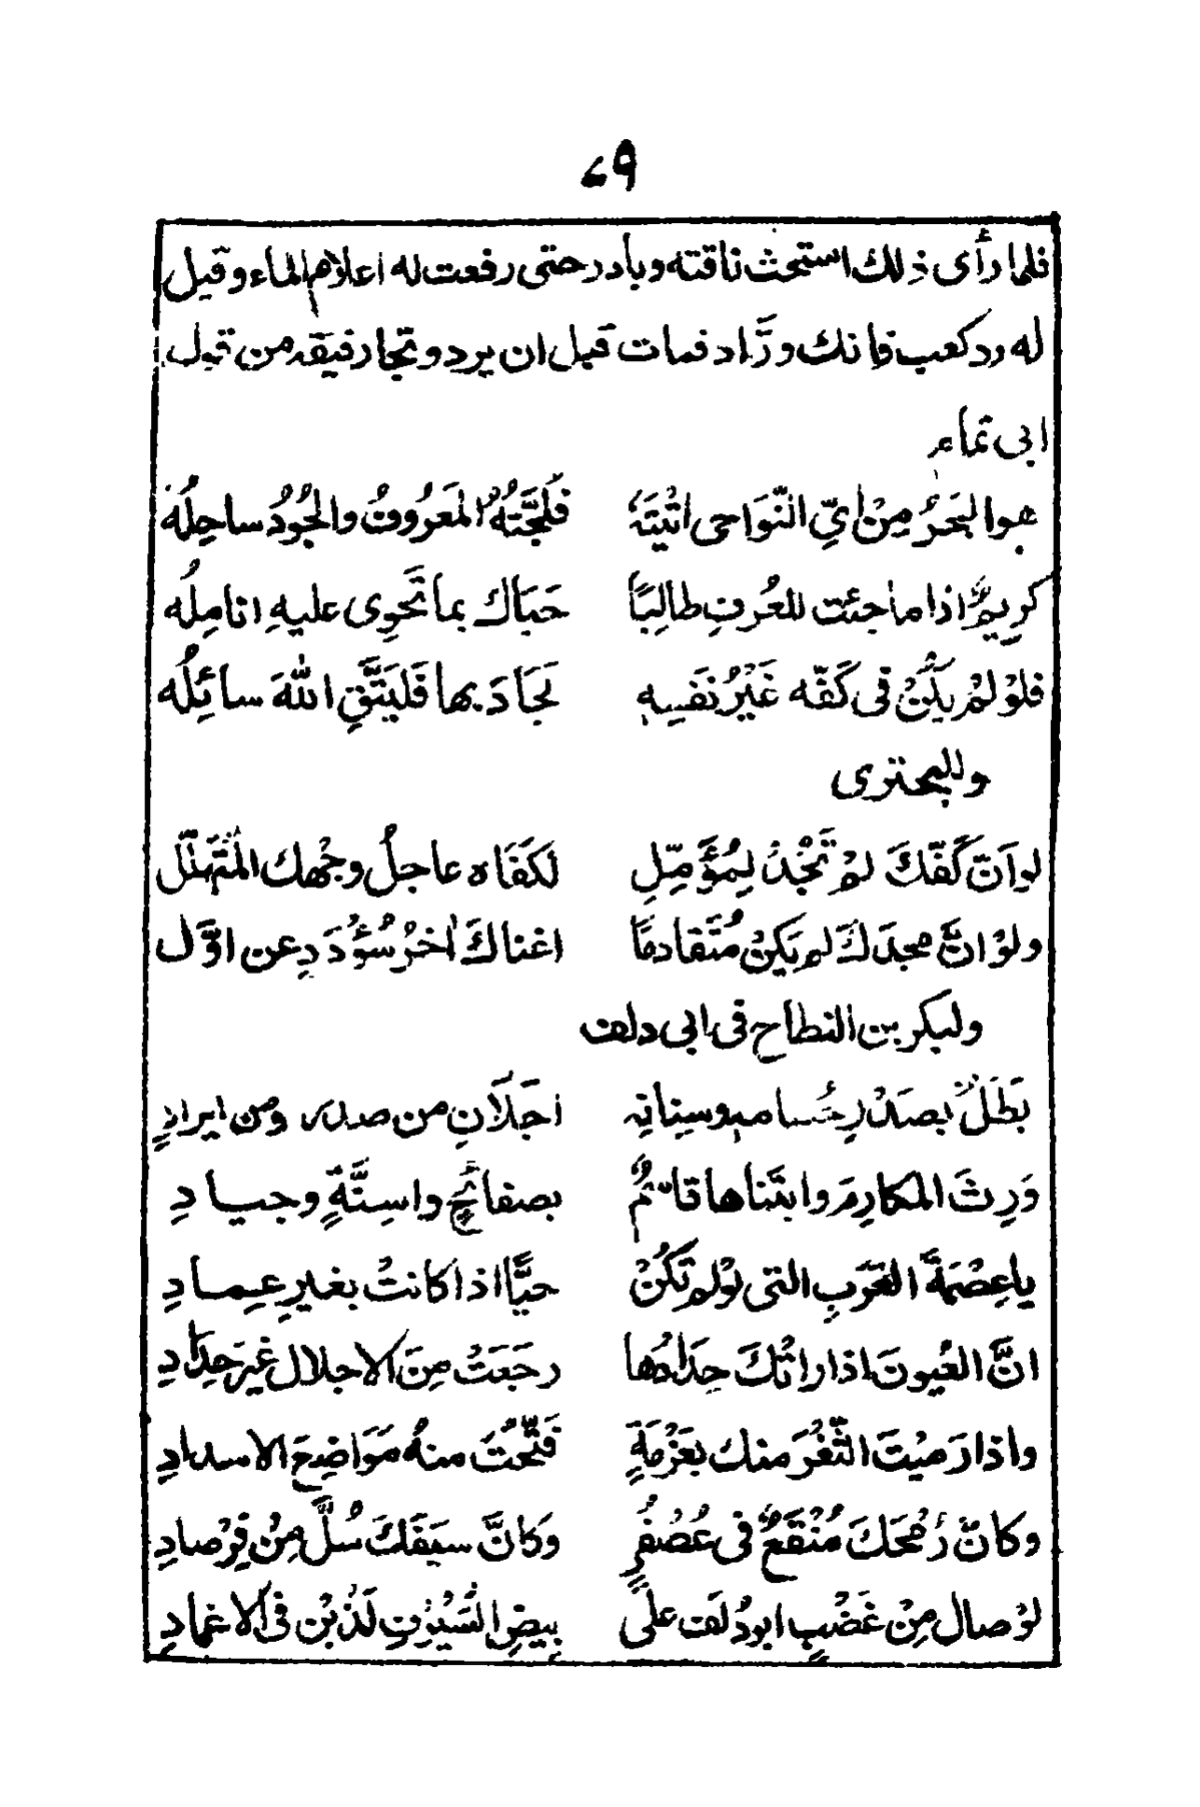 ٤٩
فلما رأى ذلك استحث ناقته وبادر حتى رفعت له اعلام الماء وقيل
له رد كعب فانك ورَّاد فمات قبل ان يرد ونجا رفيقه من قول
ابى تمام
هوا لبَحَرُ مِنْ اىِّ النّوَاحى اتْيتَهُ فَلُجَّتُهُ المَعَرُوفُ والجُودُ ساحِلُهُ
كرِيمٌ اذا ما جئت للعُرفِ طالِبًا حَبَاك بما تَحوِى عليهِ انامِلُه
فلوْ لمْ يكُنْ فى كَفّه غَيْرُ نفَسِهِ لجَادَ بها فَليَتَّقِ اللهَ سائِلُه
وللبحترى
لو اَنّ كَفّكَ لمْ تَجُدْ لِمُؤَمِّلِ لكَفَاه عاجلُ وجْهك المُتَهَلّل
ولوْ انَّ مجدَكَ لم يَكنْ مُتَقادمًا اغناكَ اٰخرُ سُؤدَدٍ عن اوّل
ولبكر بن النطاح فى ابى دلف
بَطَلٌ بصَدْرِ حُسامهِ وسِنانِه اجَلَانِ من صدرٍ ومن ايرادِ
وَرِثَ المكارِمَ وابتَناها قاسمٌ بصفائحٍ واسِنَّةٍ وجيادِ
ياعِصْمَةَ العَرَبِ التى لوْلم تَكُنْ حيًّا اذا كانتْ بغيرِ عِمادِ
انَّ العُيونَ اذا راتْكَ حِدَادُها رجَعَتْ مِنَ الاجلال غيَر حِدَادِ
واذا رَميْتَ الثّغْرَ منك بعَزْمَةٍ فَتّحتَ منهُ مَوَاضِعَ الاسدادِ
وكانّ رُمْحَكَ مُنْقَعٌ فى عُصْفُرٍ وَكانَّ سيَفَكَ سُلَّ مِنْ فِرْصادِ
لوْ صال مِنْ غَضَبٍ ابودُلَف على بِيضِ السُّيُوفِ لَذُبْن فى الاغمادِ